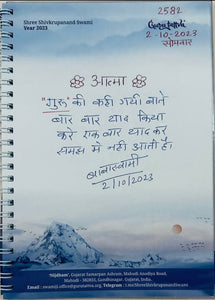 Shree Shivkrupanand Swami
Year 2023
2582
2-10-2023
सोमवार
आत्मा
"गुरु" की कही गयी बाते
बार बार याद किया
करे एक बार याद कर
समझ में नही आती है।
बाबास्वामी
2/10/2023
"Nijdham", Gujarat Samarpan Ashram, Mahudi-Amodra Road,
Mahudi - 382855, Gandhinagar, Gujarat, India.
Email : swamiji.office@gurutattva.org, Telegram : t.me/ShreeShivkrupanandSwami